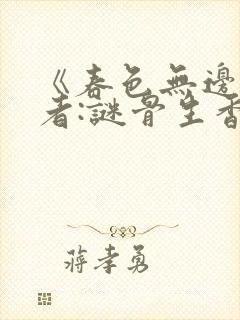 《春色無邊
者:謎骨生香
蔣孝勇